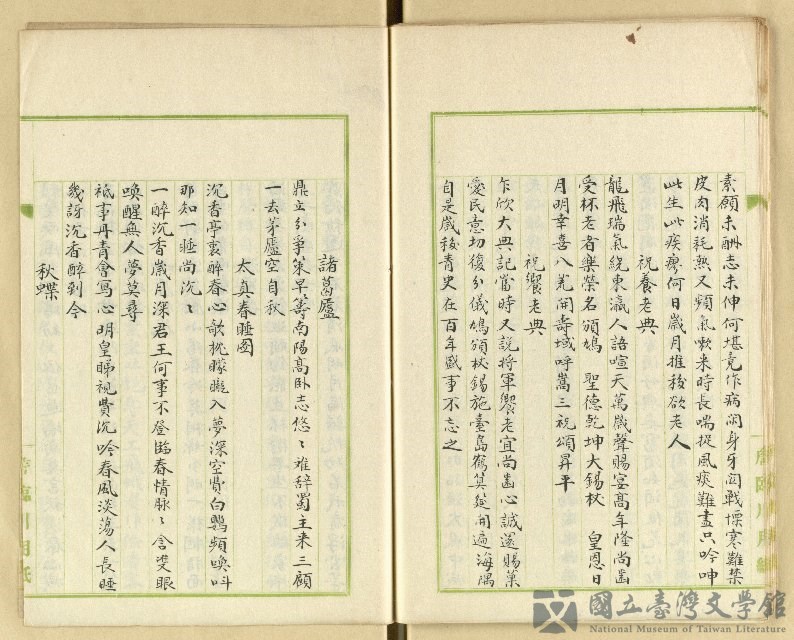 素願未酬志未伸何堪竟作病閑身牙関戰慄寒難禁
皮肉消耗熱又頻氣嗽来時長喘促風痰難盡只吟呻
此生此疾瘳何日歲月推移欲老人
祝養老典
龍飛瑞氣繞東瀛人語喧天萬歲聲賜宴高年隆尚齒
受杯老者樂榮名頒鳩 聖德乾坤大錫杖 皇恩日
月明幸喜八荒開壽域呼嵩三祝頌昇平
祝饗老典
乍欣大典記當時又説將軍饗老宜尚齒心誠遂賜菓
愛民意切復分儀鳩頒杖錫施臺島鶴筭筵開遍海隅
自是歲移青史在百年盛事不忘之
諸葛廬
鼎立分爭策早籌南陽高臥志悠〻难辞蜀主来三顧
一去茅廬空自秋
太真春睡圖
沉香亭裏醉春心欹枕矇矓入夢深空費白鸚頻喚叫
那知一睡尚沉〻
一醉沉香歲月深君王何事不登臨春情脉〻含雙眼
喚醒無人夢莫尋
祗事丹青會寫心明皇睇視費沉吟春風淡蕩人長睡
幾訝沉香醉到今
秋蝶
國立臺灣文學館
National Museum of Taiwan Literature